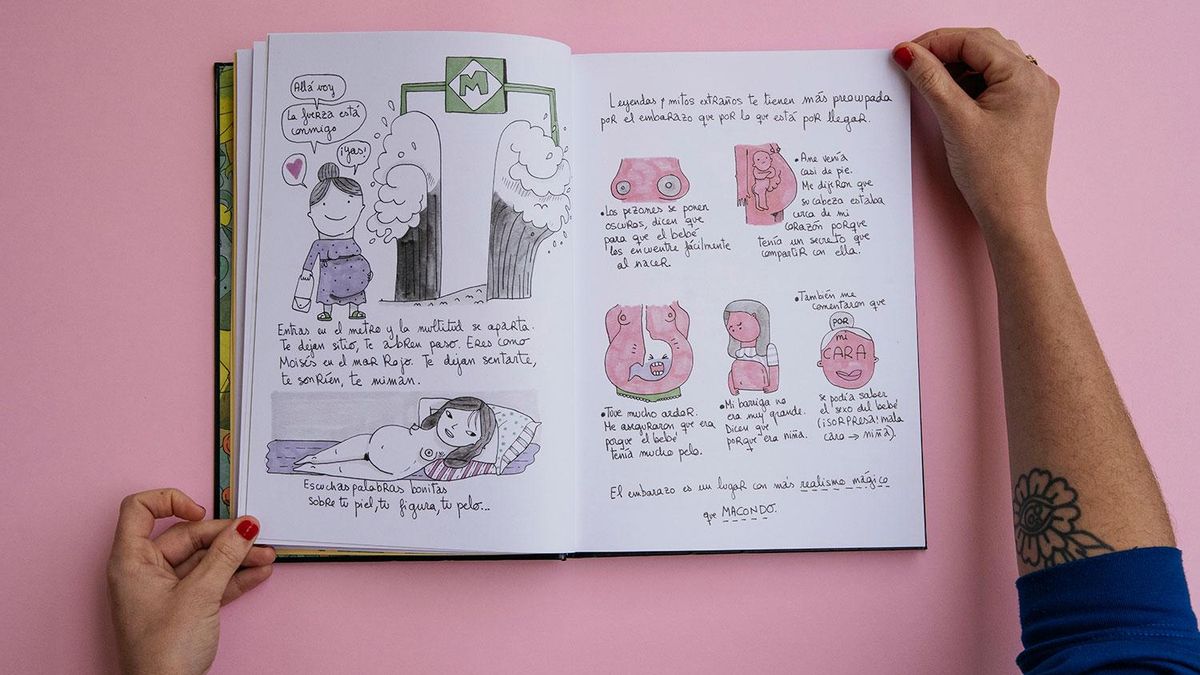 Allá voy
La fuerza está
conmigo
¡yas!
M
Entras en el metro y la multitud se aparta.
Te dejan sitio, te abren paso. Eres como
Moisés en el mar Rojo. Te dejan sentarte,
te sonríen, te miman.
Escuchas palabras bonitas
sobre tu piel, tu figura, tu pelo...
Leyendas y mitos extraños te tienen más preocupada
por el embarazo que por lo que está por llegar.
• Los pezones se ponen
oscuros, dicen que
para que el bebé
los encuentre fácilmente
al nacer.
• Ane venía
casi de pie.
Me dijeron que
su cabeza estaba
cerca de mi
corazón porque
tenía un secreto que
compartir con ella.
• Tuve mucho ardor.
Me aseguraron que era
porque el bebé
tenía mucho pelo.
• Mi barriga no
era muy grande.
Dicen que
porque era niña.
• También me
comentaron que
POR
mi
CARA
se podía saber
el sexo del bebé
(¡SORPRESA! mala
cara → niña).
El embarazo es un lugar con más realismo mágico
que MACONDO.